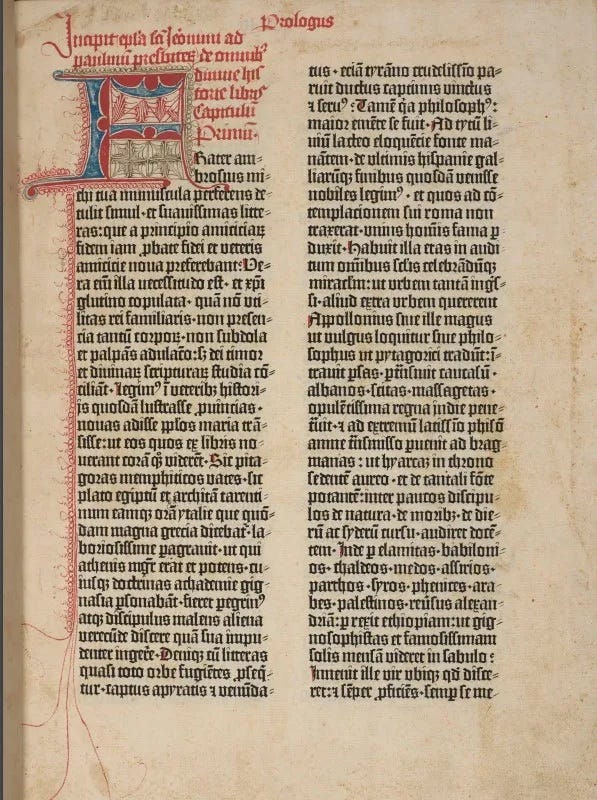 Prologus
Incipit epła sc̄i Jeronimi ad
paulinū presbiterꝫ de omnibꝰ
diuine his
torie libris
Capitulū
Primū.
Frater am⸗
brosius mi⸗
chi tua munuscula perferens de⸗
tulit simul · et suauissimas litte⸗
ras: que a principio amiciciaꝝ
fidem iam ꝓbate fidei et veteris
amicicie noua preferebant: Ve⸗
ra eni̅ illa necessitudo est · et xp̄i
glutino copulata · quā nō vti⸗
litas rei familiaris · non presen⸗
cia tantū corpoꝝ · non subdola
et palpās adulacō: sꝫ dei timor
et diuinaꝝ scripturaꝝ studia cō⸗
ciliāt · Legimꝰ ī veteribꝫ histori⸗
js quosdā lustrasse ꝓuincias ·
nouas adisse pp̄los maria trā⸗
sisse: ut eos quos ex libris no⸗
uerant corā qꝫ viderēt · Sic pita⸗
goras memphiticos vates · sic
plato egiptū et architā tarenti⸗
num eamqꝫ orā ytalie que quō⸗
dam magna grecia dicebat̄ · la⸗
boriosissime ꝑagrauit · ut qui
athenis mgr̄ erat et potens · cu⸗
iusqꝫ doctrinas achademie gig⸗
nasia ꝑsonabāt · fieret ꝑegrinꝰ
atqꝫ discipulus malens aliena
verecūde discere quā sua īmpu⸗
denter ingerēˀ · Deniqꝫ cū litteras
quasi toto orbe fugiētes ꝑseqꝫ⸗
tur · captus a pyratis ⁊ venūda⸗
tus · eciā tyrāno crudelissīo pa⸗
ruit ductus captiuus vinctus
⁊ seruꝰ: Tamē qa philosophꝰ:
maior emēte se fuit · Ad tytū li⸗
uiū lacteo eloquēcie fonte ma⸗
nātem · de vltimis hispanie gal⸗
liarūqꝫ finibus quosdā venisse
nobiles legimꝰ · et quos ad cō⸗
templacionem sui roma non
traxerat · vnius hoīnis fama ꝑ
duxit · Habuit illa etas in audi
tum omībus sclīs celebrādūqꝫ
miraclm̄: ut vrbem tantā īgs̄⸗
si · aliud extra vrbem quererent
Appollonius siue ille magus
ut vulgus loquitur siue philo⸗
sophus ut pytagorici tradūt: ī⸗
trauit ꝑsas · ꝑtn̄siuit caucasū ·
albanos · scitas · massagetas ·
opulētissima regna indie pene⸗
trauit · ⁊ ad extremū latissīo phisō
amne trn̄smisso ꝑuenit ad brag⸗
manas: ut hyarcaꝫ in throno
sedentē aureo · et de tantali fōte
potantē: inter paucos discipu⸗
los de natura · de moribꝫ · de die⸗
rū ac sydeꝝ cursu · audiret docē⸗
tem · Inde ꝑ elamitas · babiloni⸗
os · chaldeos · medos · assirios ·
parthos · syros · phenices · ara
bes · palestinos · reūsus alexan⸗
driā: ꝑrexit ethiopiam: ut gig⸗
nosophistas et famosissimam
solis mensā videret in sabulo:
Inuenit ille vir vbiqꝫ qd̄ disce⸗
ret: ⁊ sēper ꝓficiēs · semꝑ se me⸗